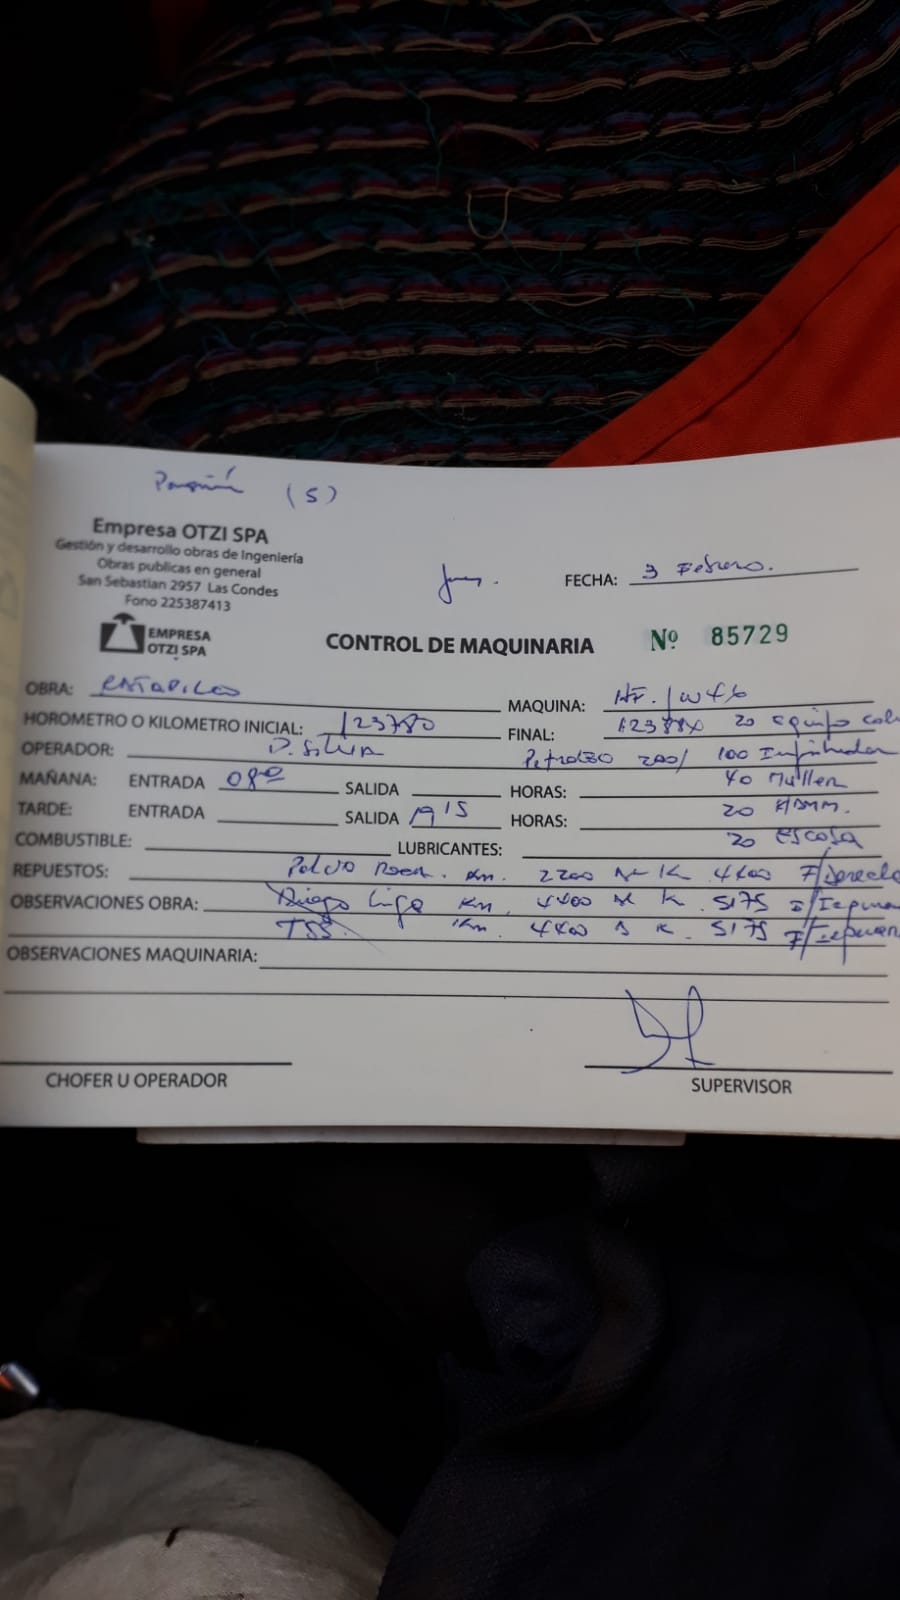 (S)
Empresa OTZI SPA
Gestión y desarrollo obras de Ingeniería
Obras publicas en general
San Sebastian 2957 Las Condes
Fono 225387413
FECHA: 3 Febrero.
EMPRESA
OTZI SPA
CONTROL DE MAQUINARIA Nº 85729
OBRA:
MAQUINA:
HOROMETRO O KILOMETRO INICIAL: 123780
FINAL: 20 equipo
OPERADOR: D. Silva
Petroleo 200/ 100
MAÑANA: ENTRADA 08 00 SALIDA HORAS: 40 Muller
TARDE: ENTRADA SALIDA 19 15 HORAS: 20
COMBUSTIBLE: LUBRICANTES: 20 escoba
REPUESTOS: Polvo Km. 2200 K 4400 F/Derecha
OBSERVACIONES OBRA: Diego Km. 4400 K. 5175
TSS. Km. 4400 K. 5175
OBSERVACIONES MAQUINARIA:
CHOFER U OPERADOR
SUPERVISOR